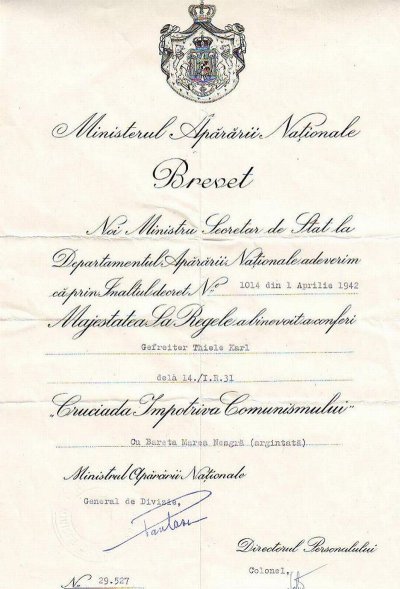 Ministerul Apărării Naționale
Brevet
Noi Ministru Secretar de Stat la
Departamentul Apărării Naționale, adeverim
că prin Înaltul decret No 1014 din 1 Aprilie 1942
Majestatea Sa Regele a binevoit a conferi
Gefreiter Thiele Karl
delà 14./I.R.31
"Cruciada Împotriva Comunismului"
Cu Bareta Marea Neagră (argintată)
Ministrul Apărării Naționale
General de Divizie,
Directorul Personalului
Colonel,
No 29.527